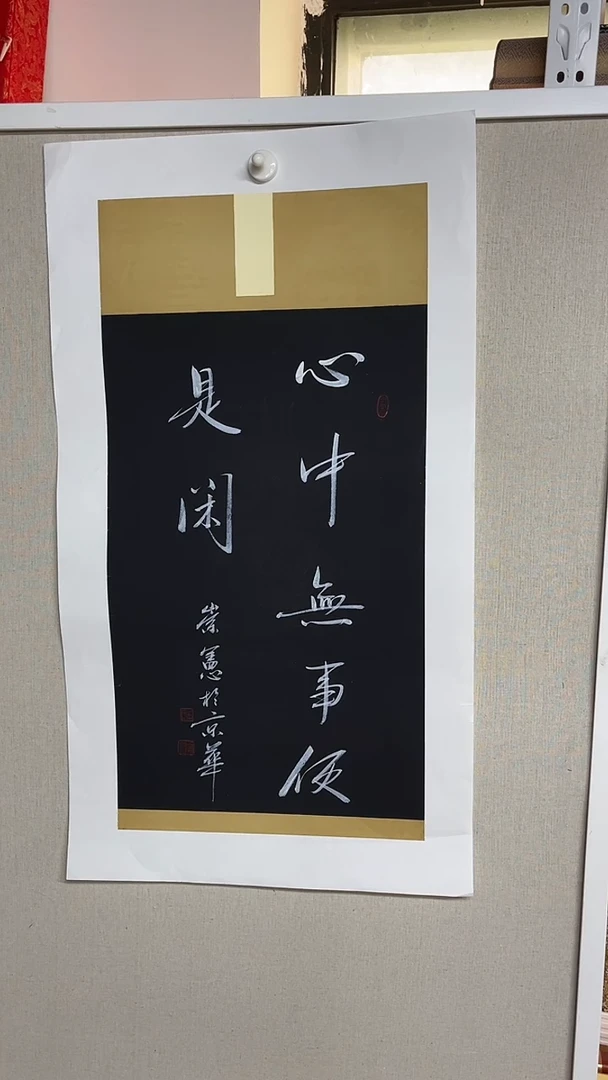 心中無事便
是闲
崇憲於京華